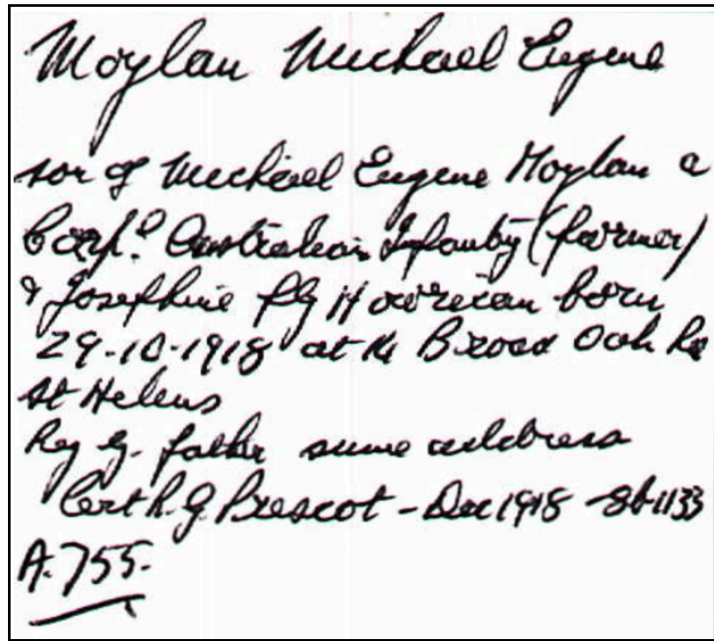 Moylan Michael Eugene
son of Michael Eugene Moylan a
Corpl. Australian Infantry (farmer)
& Josephine fly Howrican born
29-10-1918 at 14 Broad Oak Rd
St Helens
Reg by father same address
Cert R.G Prescot - Dec 1918 - 8b1133
A.755.